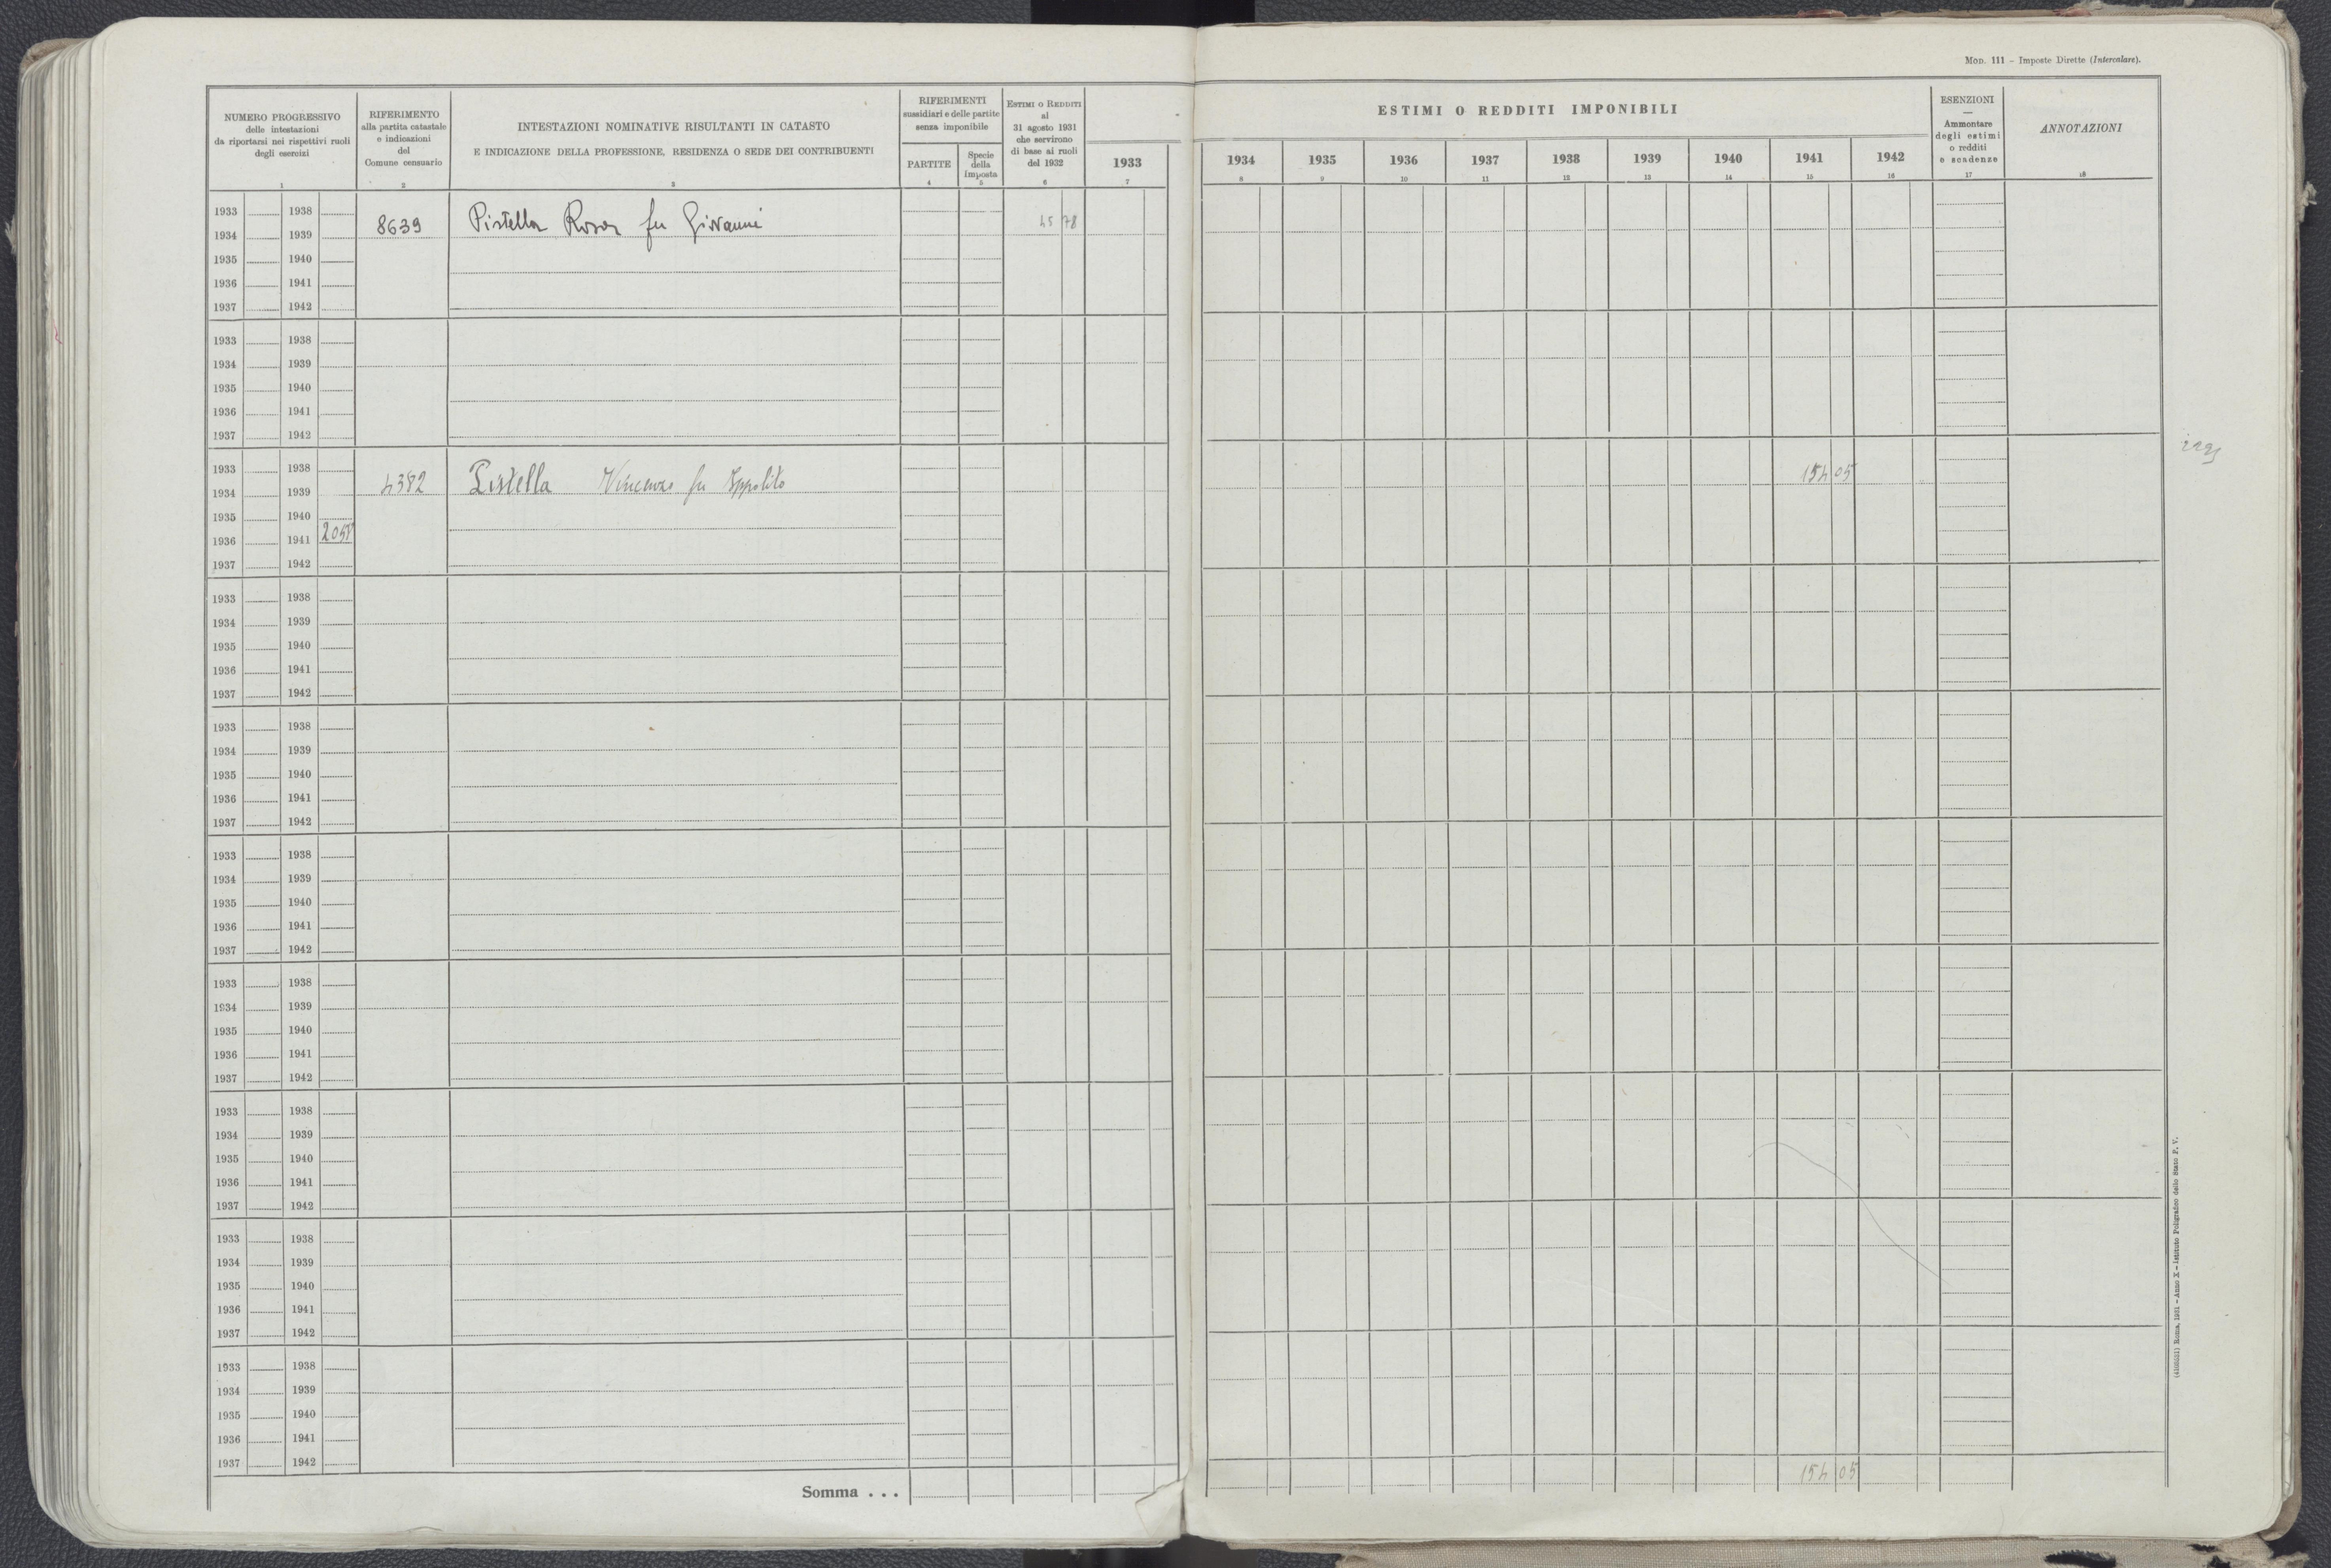 MOD. 111 – Imposte Dirette (Intercalare).
NUMERO PROGRESSIVO
delle intestazioni
da riportarsi nei rispettivi ruoli
degli esercizi
1
RIFERIMENTO
alla partita catastale
e indicazioni
del
Comune censuario
2
INTESTAZIONI NOMINATIVE RISULTANTI IN CATASTO
E INDICAZIONE DELLA PROFESSIONE, RESIDENZA O SEDE DEI CONTRIBUENTI
3
RIFERIMENTI
sussidiari e delle partite
senza imponibile
PARTITE
4
Specie
della
imposta
5
ESTIMI O REDDITI
al
31 agosto 1931
che servirono
di base ai ruoli
del 1932
6
ESTIMI O REDDITI IMPONIBILI
1933 1934 1935 1936 1937 1938 1939 1940 1941 1942
7 8 9 10 11 12 13 14 15 16
ESENZIONI
—
Ammontare
degli estimi
o redditi
e scadenze
17
ANNOTAZIONI
18
1933 1938
8639 Pistella Rosa fu Giovanni 45 78
1934 1939
1935 1940
1936 1941
1937 1942
1933 1938
1934 1939
1935 1940
1936 1941
1937 1942
1933 1938
4382 Pistella Vincenzo fu Ippolito 154 05
1934 1939
1935 1940
1936 1941
1937 1942
1933 1938
1934 1939
1935 1940
1936 1941
1937 1942
1933 1938
1934 1939
1935 1940
1936 1941
1937 1942
1933 1938
1934 1939
1935 1940
1936 1941
1937 1942
1933 1938
1934 1939
1935 1940
1936 1941
1937 1942
1933 1938
1934 1939
1935 1940
1936 1941
1937 1942
1933 1938
1934 1939
1935 1940
1936 1941
1937 1942
1933 1938
1934 1939
1935 1940
1936 1941
1937 1942
Somma . . . 154 05
Roma, 1931 – Anno X – Istituto Poligrafico dello Stato P. V.